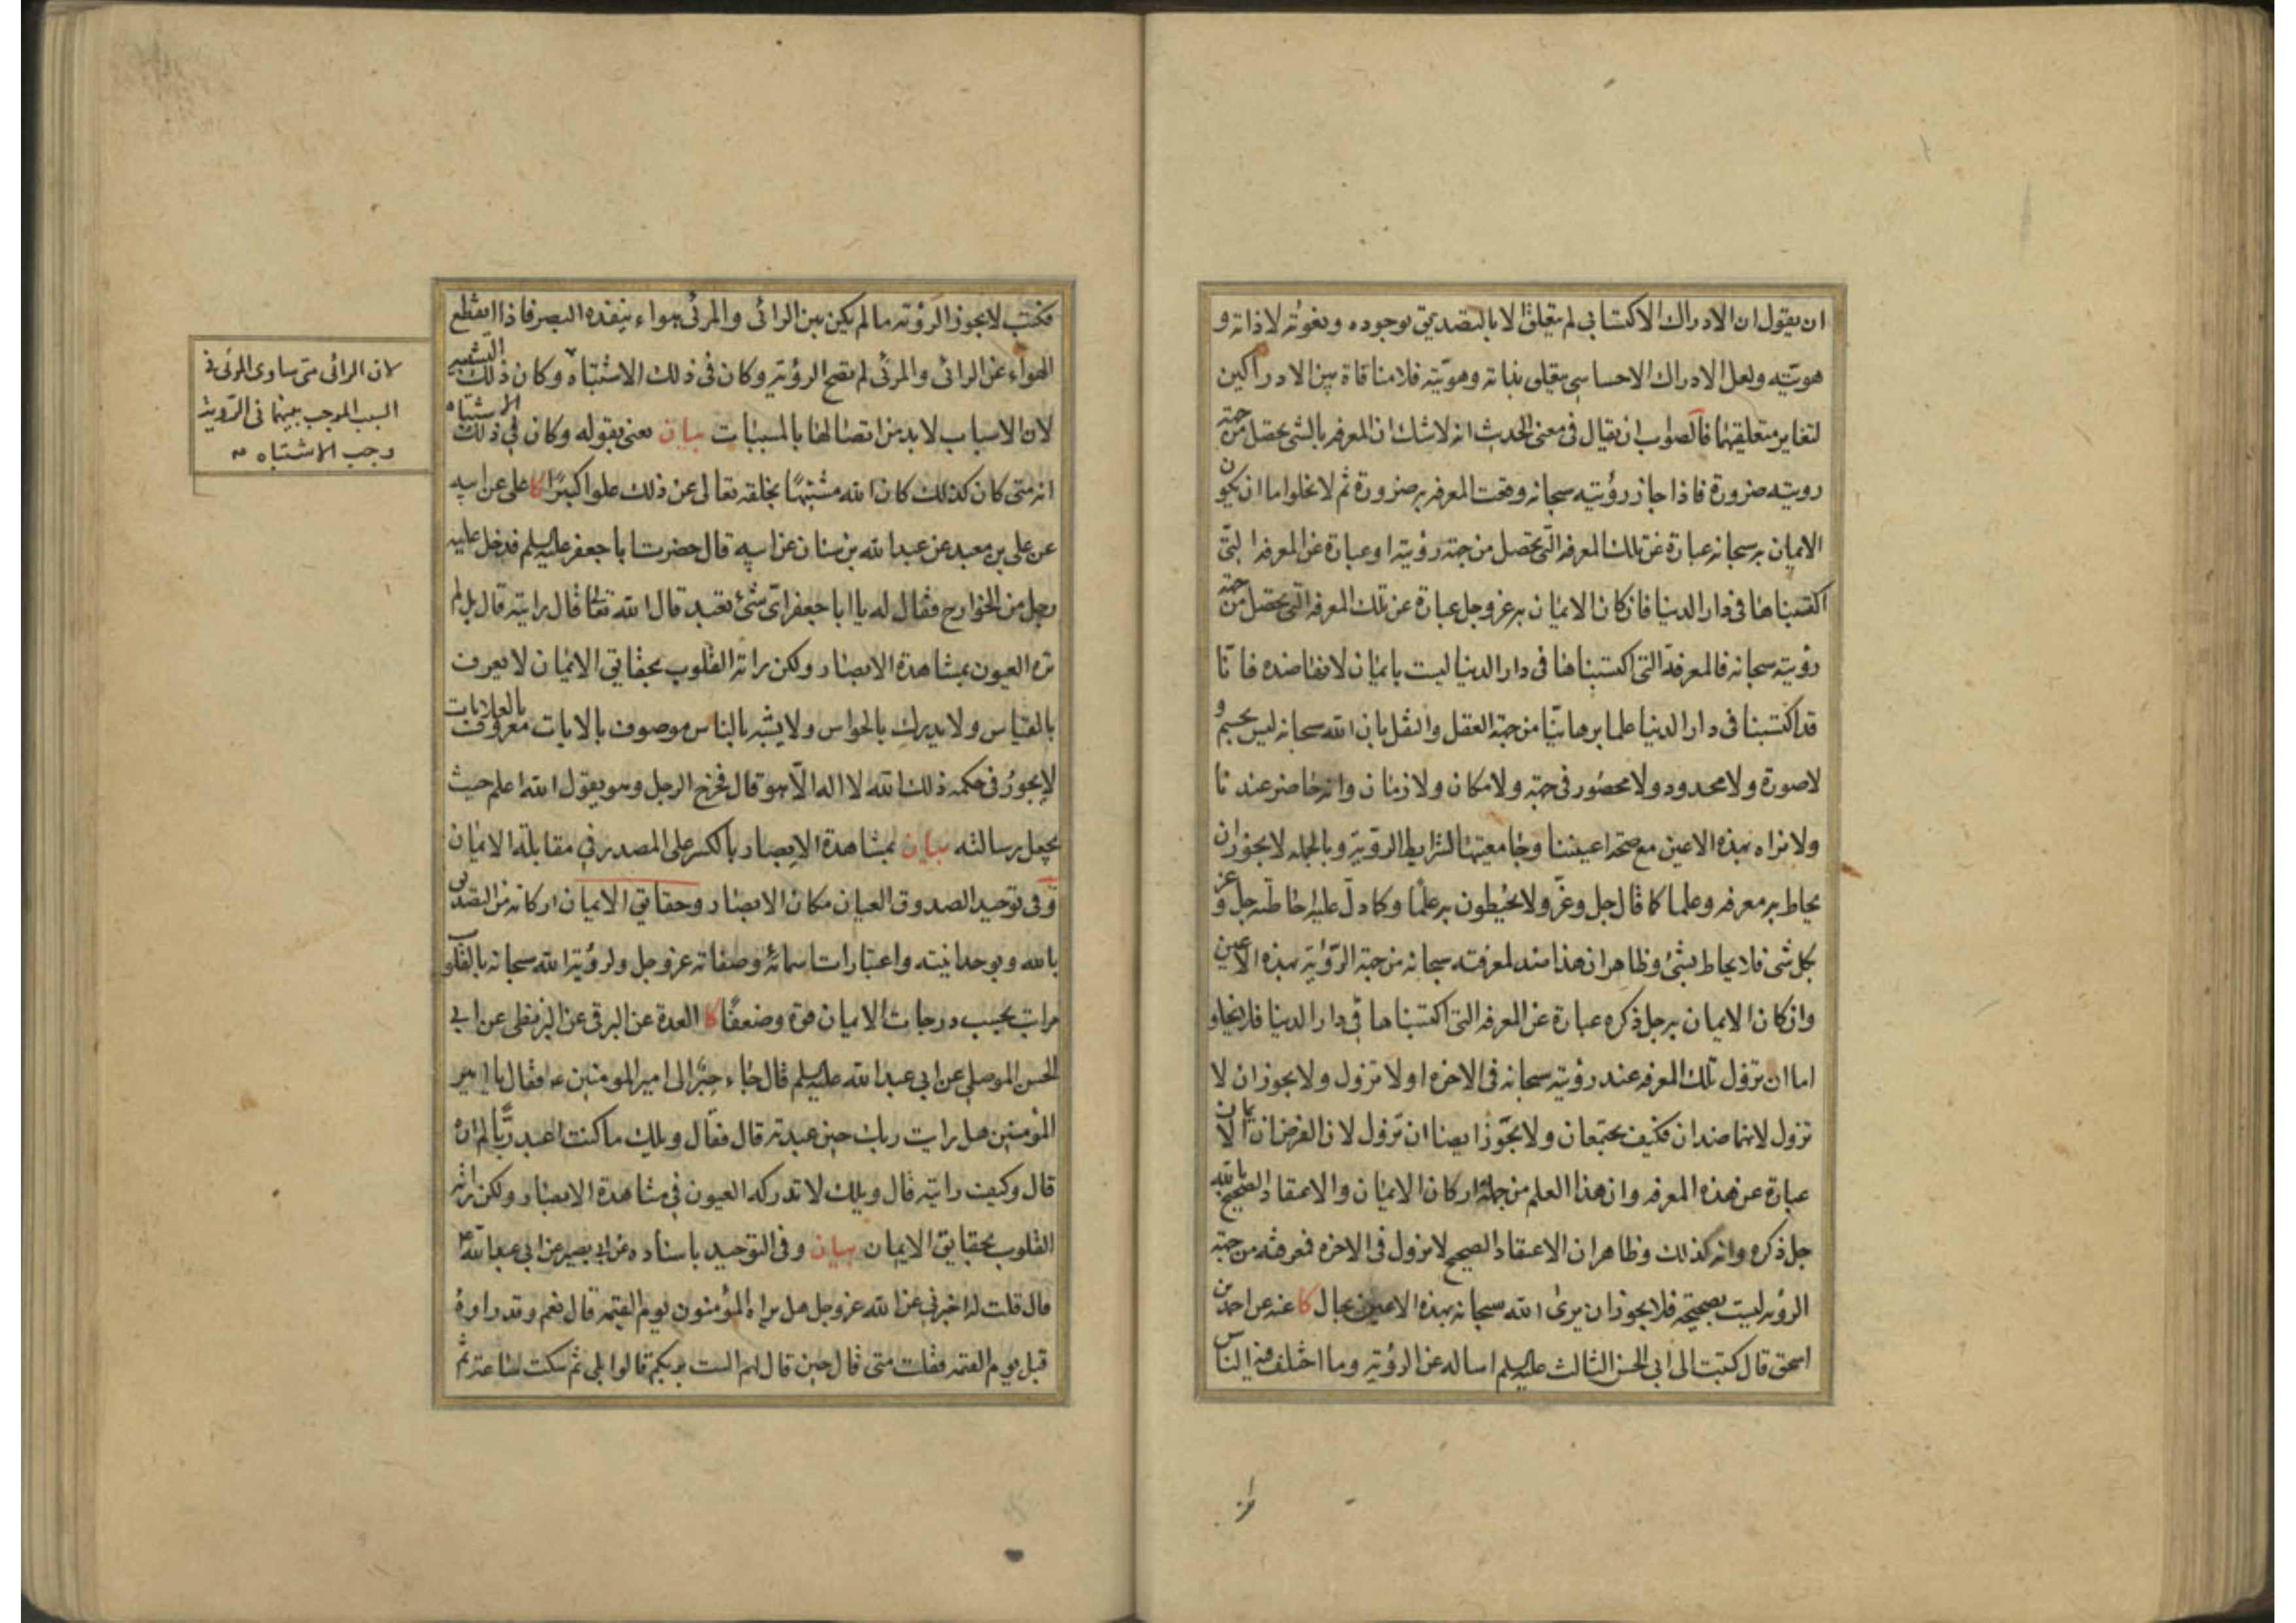 ان يقول ان الادراك الاكتسابي لم يتعلق الا بالتصديق بوجوده ونعوته لا ذاته و
هويته ولعل الادراك الاحساسي يتعلق بذاته وهويته فلا منافاة بين الادراكين
لتغاير متعلقيهما فالصواب ان يقال في معنى الحديث انه لا شك ان المعرفه بالشئ يحصل من جهة
رويته ضرورة فاذا جاز رؤيته سبحانه وقعت المعرفه به ضرورة ثم لا يخلوا ما ان يكون
الايمان به سبحانه عبارة عن تلك المعرفه التي تحصل من جهة رؤيته او عبارة عن المعرفه التي
اكتسبناها في دار الدنيا فان كان الايمان به عز وجل عبارة عن تلك المعرفه التي تحصل من جهة
رؤيته سبحانه فالمعرفة التي اكتسبناها في دار الدنيا ليست بايمان لانها ضده فانا
قد اكتسبنا في دار الدنيا علما برهانيا من جهة العقل والنقل بان الله سبحانه ليس بجسم و
لا صورة ولا محدود ولا محصور في جهة ولا مكان ولا زمان وانه حاضر عندنا
ولا نراه بهذه الاعين مع صحة اعيننا وجامعيتها لشرايط الروية وبالجمله لا يجوز ان
يحاط به معرفه وعلما كما قال جل وعز ولا يحيطون به علما وكما دل عليه احاطته جل وعز
بكل شئ فلا يحاط بشئ وظاهر ان هذا ضد لمعرفته سبحانه من جهة الرؤية بهذه الاعين
وان كان الايمان به جل ذكره عبارة عن المعرفه التي اكتسبناها في دار الدنيا فلا يخلو
اما ان تزول تلك المعرفه عند رؤيته سبحانه في الاخره او لا تزول ولا يجوز ان لا
تزول لانهما ضدان فكيف يجتمعان ولا يجوز ايضا ان تزول لان الغرض ان الايمان
عبارة عن هذه المعرفه وان هذا العلم من جملة اركان الايمان والاعتقاد الصحيح بالله
جل ذكره وانه كذلك وظاهر ان الاعتقاد الصحيح لا يزول في الاخره فمعرفته من جهة
الرؤيه ليست بصحيحة فلا يجوز ان يرى الله سبحانه بهذه الاعين بحال كا عنه عن احمد بن
اسحق قال كتبت الى ابي الحسن الثالث عليه السلم اساله عن الرؤية وما اختلف فيه الناس
فكتب لا يجوز الرؤية ما لم يكن بين الرائي والمرئي هواء ينفذه البصر فاذا انقطع
الهواء عن الرائي والمرئي لم تصح الرؤية وكان في ذلك الاشتباه وكان ذلك التشبيه
لان الاسباب لا بد من اتصالها بالمسببات بيان يعني بقوله وكان في ذلك الاشتباه
انه متى كان كذلك كان الله مشتبها بخلقه تعالى عن ذلك علوا كبيرا كا على عن ابيه
عن على بن معبد عن عبد الله بن سنان عن ابيه قال حضرت ابا جعفر عليه السلم فدخل عليه
رجل من الخوارج فقال له يا ابا جعفر اى شئ تعبد قال الله تعالى قال رايته قال بل لم
تره العيون بمشاهدة الابصار ولكن راته القلوب بحقايق الايمان لا يعرف
بالقياس ولا يدرك بالحواس ولا يشبه بالناس موصوف بالايات معروف بالعلامات
لا يجوز في حكمه ذلك الله لا اله الا هو قال فخرج الرجل وهو يقول الله اعلم حيث
يجعل رسالته بيان بمشاهدة الابصار بالكسر على المصدر في مقابلة الايمان
وفي توحيد الصدوق العيان مكان الابصار وحقايق الايمان اركانه من التصديق
بالله وبوحدانيته واعتبارات اسمائه وصفاته عز وجل ولرؤية الله سبحانه بالقلوب
مراتب بحسب درجات الايمان قوة وضعفا كا العدة عن البرقى عن البزنطى عن ابى
الحسن الموصلى عن ابى عبد الله عليه السلم قال جاء حبر الى امير المومنين ع فقال يا امير
المؤمنين هل رايت ربك حين عبدته قال فقال ويلك ما كنت اعبد ربا لم اره
قال وكيف رايته قال ويلك لا تدركه العيون في مشاهدة الابصار ولكن راته
القلوب بحقايق الايمان بيان وفى التوحيد باسناده عن ابى بصير عن ابى عبد الله ع
قال قلت له اخبرني عن الله عز وجل هل يراه المؤمنون يوم القيمه قال نعم وقد راوه
قبل يوم القيمه فقلت متى قال حين قال لهم الست بربكم قالوا بلى ثم سكت ساعة ثم
لان الرائى متى ساوى المرئى فى
السبب الموجب بينهما فى الرؤية
وجب الاشتباه